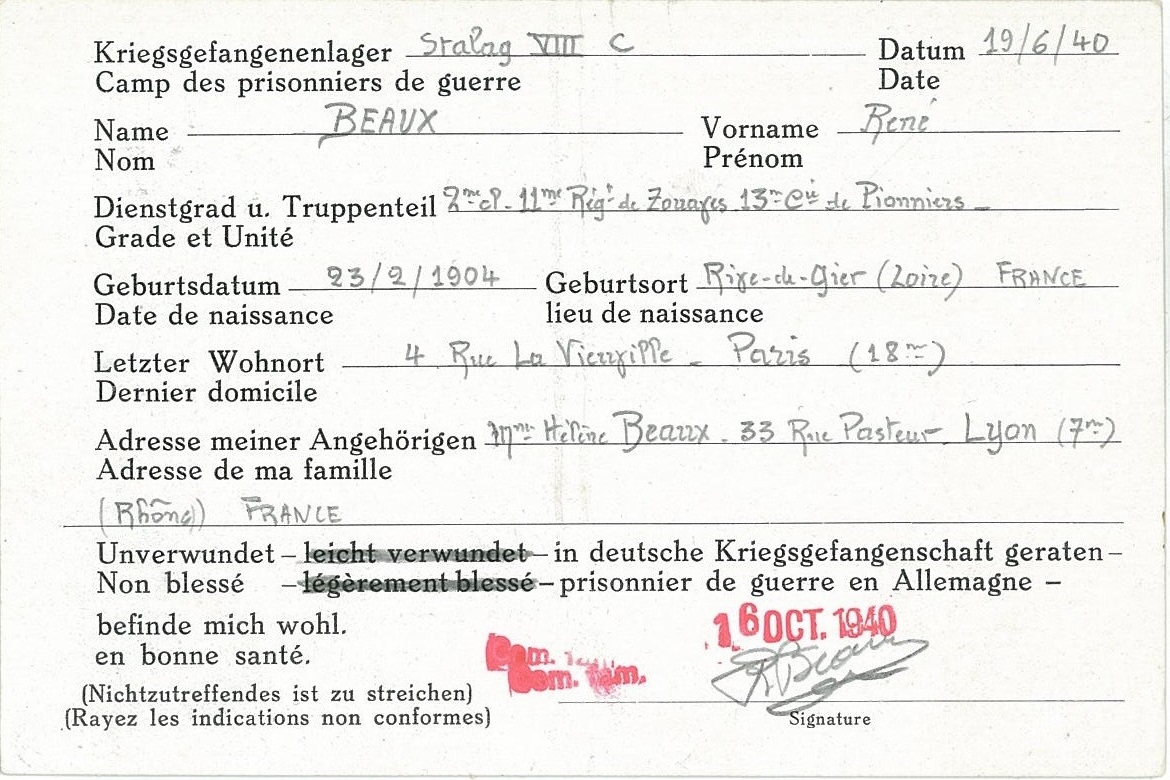 Kriegsgefangenenlager Stalag VIII C Datum 19/6/40
Camp des prisonniers de guerre Date
Name BEAUX Vorname René
Nom Prénom
Dienstgrad u. Truppenteil 2me cl. 11me Régt de Zouaves 13me Cie de Pionniers
Grade et Unité
Geburtsdatum 23/2/1904 Geburtsort Rive-de-Gier (Loire) FRANCE
Date de naissance lieu de naissance
Letzter Wohnort 4 Rue La Vieuville - Paris (18me)
Dernier domicile
Adresse meiner Angehörigen Mme Hélène Beaux. 33 Rue Pasteur Lyon (7me)
Adresse de ma famille
(Rhône) FRANCE
Unverwundet – leicht verwundet – in deutsche Kriegsgefangenschaft geraten –
Non blessé – légèrement blessé – prisonnier de guerre en Allemagne –
befinde mich wohl. 16 OCT. 1940
en bonne santé. Dom. fam.
Dom. fam. R Beaux
(Nichtzutreffendes ist zu streichen)
(Rayez les indications non conformes) Signature